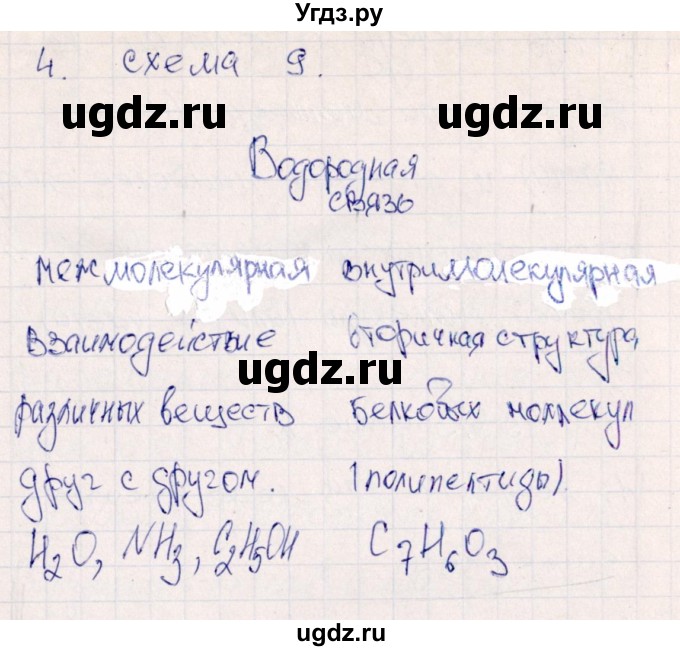 Угдз.ру
4. схема 9.
ugdz.ru ugdz.ru
Водородная
связь
межмолекулярная внутримолекулярная
взаимодействие вторичная структура
ugdz.ru
различных веществ белковых моллекул
друг с другом. (полипептиды)
H₂O, NH₃, C₂H₅OH C₇H₆O₃
ugdz.ru